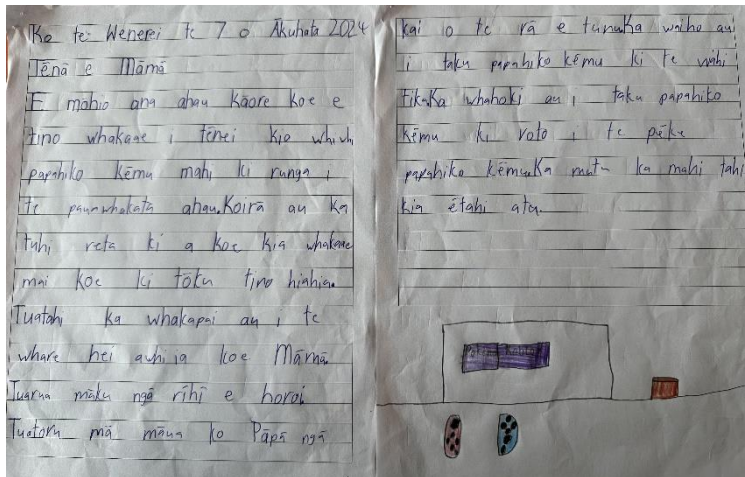 Ko te Wenerei te 7 o Ākuhata 2024
Tēnā e Māmā
E mōhio ana ahau Kāore koe e
tino whakaae i tēnei kio whiwhi
papahiko kēmu mahi ki runga i
te paunwhakata ahau. Koirā au ka
tuhi reta ki a koe kia whakaae
mai koe ki tōku tino hiahia.
Tuatahi ka whakapai au i te
whare hei āwhina koe Māmā.
Tuarua māku ngā rīhi e horoi.
Tuatoru mā māua ko Pāpā ngā
kai o te rā e tunu. Ka waiho au
i taku papahiko kēmu ki te wāhi
tika. Ka whahoki au i taku papahiko
kēmu ki roto i te pēke
papahiko kēmu. Ka mutu ka mahi tahi
kia ētahi atu.